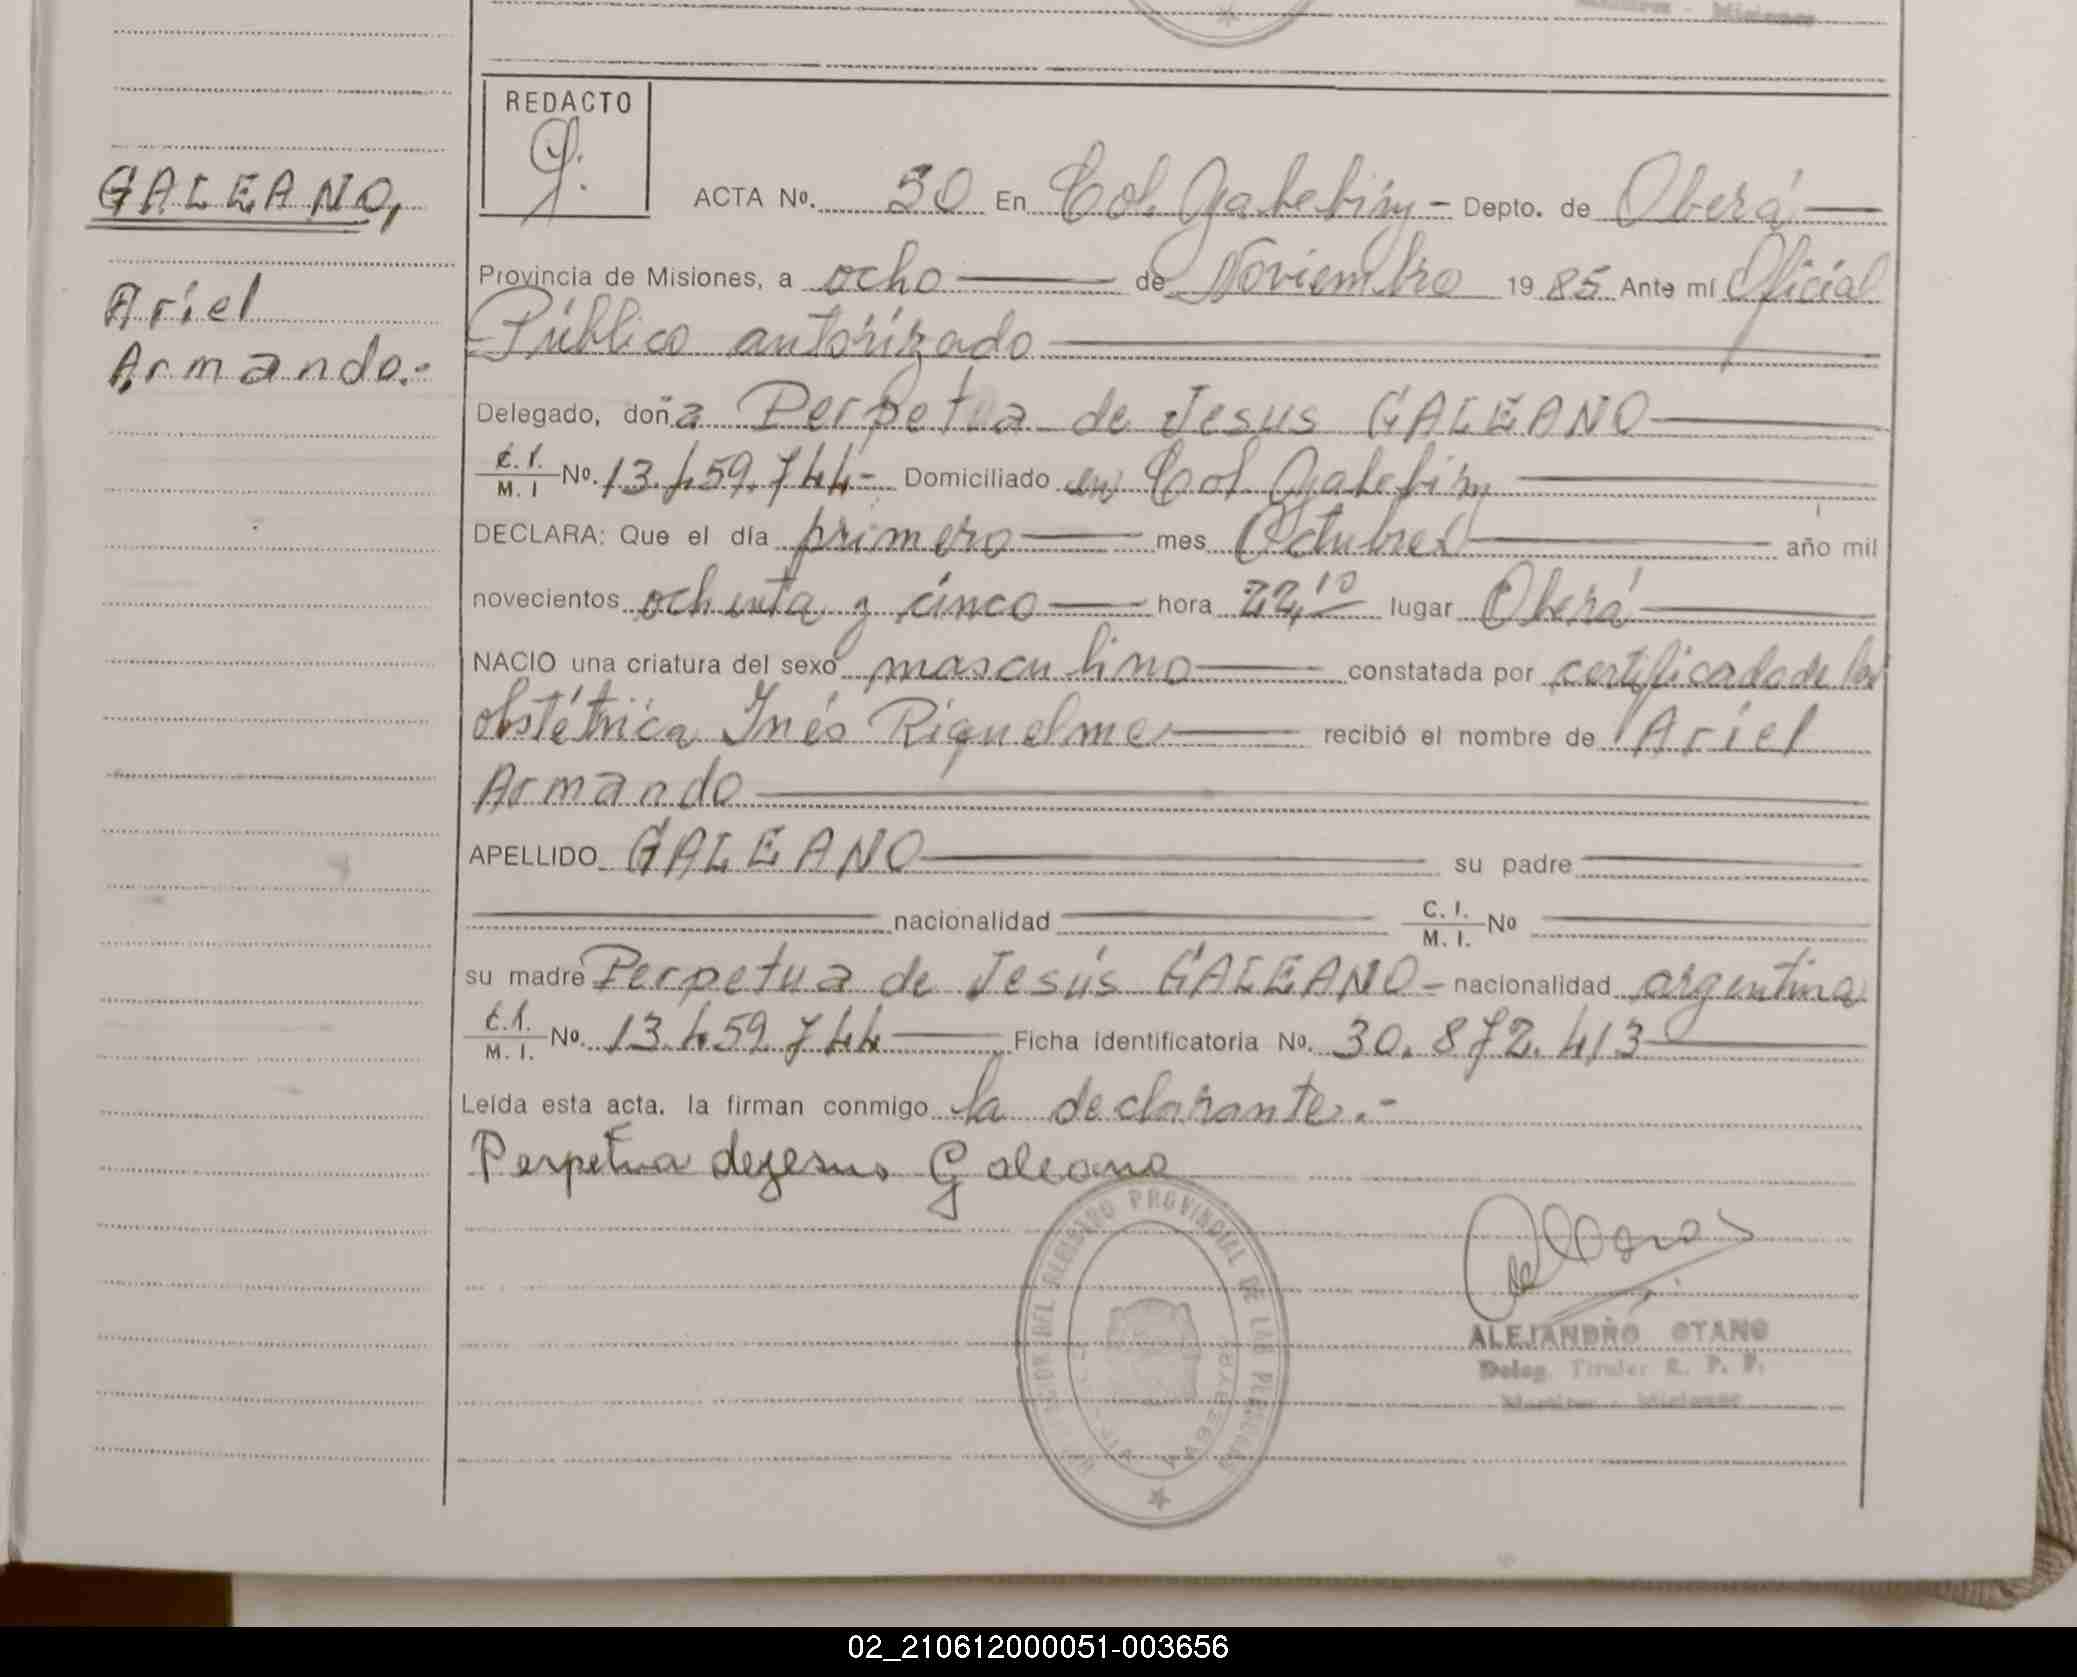 REDACTO
GALEANO,
Ariel
Armando.-
ACTA No. 50 En Col. Yabebiry - Depto. de Oberá
Provincia de Misiones, a ocho de Noviembre 1985 Ante mí Oficial
Público autorizado
Delegado, doña Perpetua de Jesus GALEANO
C.I. M. I No. 13.459.744- Domiciliado en Col. Yabebiry
DECLARA: Que el día primero mes Octubre año mil
novecientos ochenta y cinco hora 22,10 lugar Oberá
NACIO una criatura del sexo masculino constatada por certificado de la
obstétrica Inés Riquelme recibió el nombre de Ariel
Armando
APELLIDO GALEANO su padre
nacionalidad C. I. M. I. No
su madre Perpetua de Jesús GALEANO - nacionalidad argentina
C.I. M. I. No. 13.459.744 Ficha identificatoria No. 30.872.413
Leída esta acta. la firman conmigo la declarante.-
Perpetua dejesus Galeano
REGISTRO PROVINCIAL DE LAS PERSONAS
ALEJANDRO OTANO
Deleg. Titular R. P. P.
Misiones
02_210612000051-003656